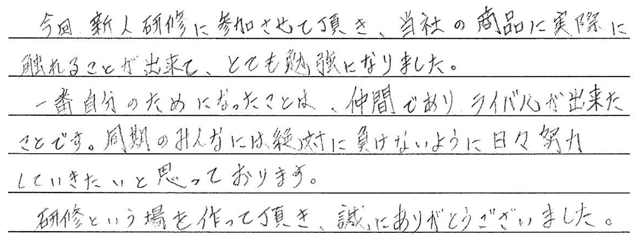 今回 新人研修に参加させて頂き、当社の商品に実際に
触れることが出来て、とても勉強になりました。
一番自分のためになったことは、仲間でありライバルが出来た
ことです。同期のみんなには絶対に負けないように日々努力
していきたいと思っております。
研修という場を作って頂き、誠にありがとうございました。